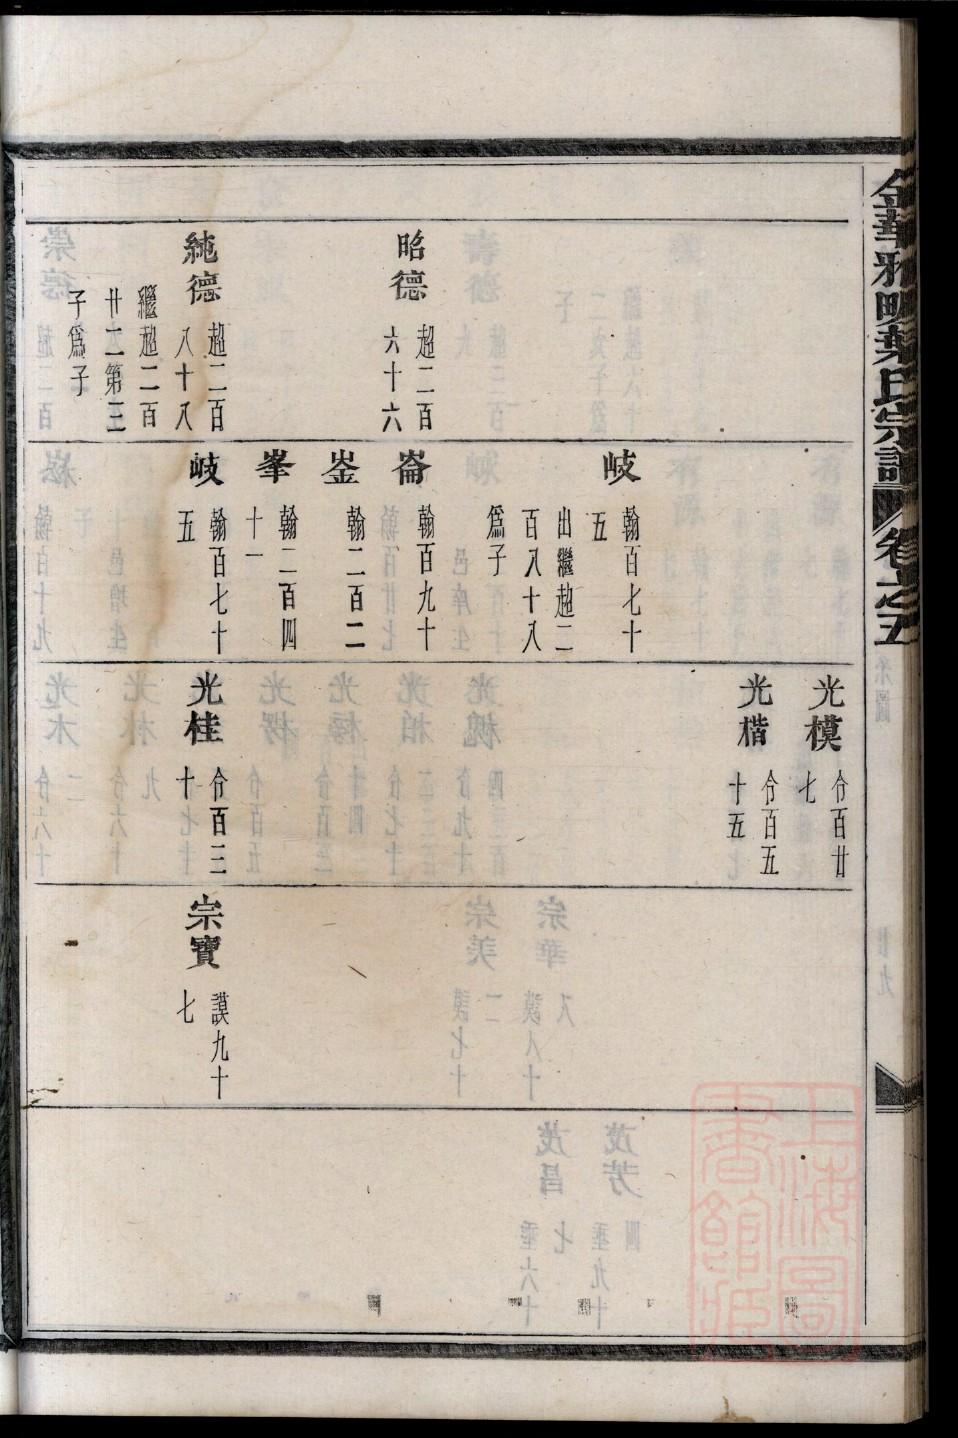 金華邢明葉氏宗譜 卷之五
昭德 超二百六十六
純德 超二百八十八
繼超二百
廿二第三
子爲子
岐 翰百七十五
出繼超二
百八十八
爲子
崙 翰百九十
崟 翰二百二
峯 翰二百四十一
岐 翰百七十五
光模 分百廿七
光楷 分百五十五
光桂 分百三十
宗寶 謨九十七
上海圖書館藏